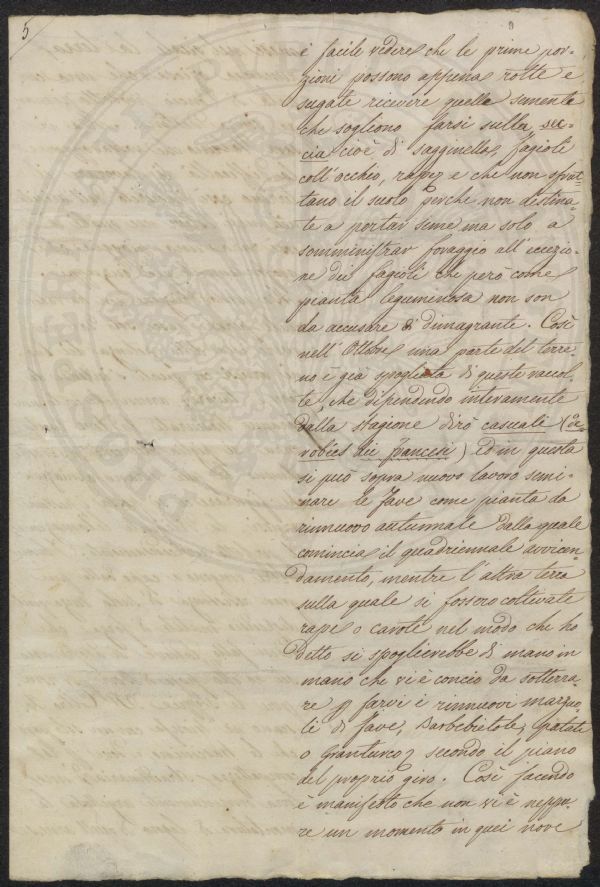 5
è facile vedere che le prime por-
zioni possono appena rotte e
sugate ricevere quelle semente
che sogliono farsi sulla sec-
cia cioè di sagginella, fagioli
coll'occhio, rape e che non sfrut-
tano il suolo perche non destina-
te a portar seme ma solo a
somministrar foraggio all'eccezio-
ne dei fagioli che però come
pianta leguminosa non son
da accusare di dimagrante. Così
nell'Ottobre una parte del terre-
no è già spogliata di queste raccol-
te, che dipendendo interamente
dalla stagione dirò casuali (de-
robées dei francesi) ed in questa
si può sopra nuovo lavoro semi-
nare le fave come pianta da
rinnuovo autunnale dalla quale
comincia il quadriennale avvicen-
damento, mentre l'altra terra
sulla quale si fossero coltivate
rape o carote nel modo che ho
detto si spoglierebbe di mano in
mano che vi è concio da sotterra-
re p farvi i rinnuovi marzuo-
li di fave, Barbebietole, patate
o granturco, secondo il piano
del proprio giro. Così facendo
è manifesto che non vi è neppu-
re un momento in quei nove